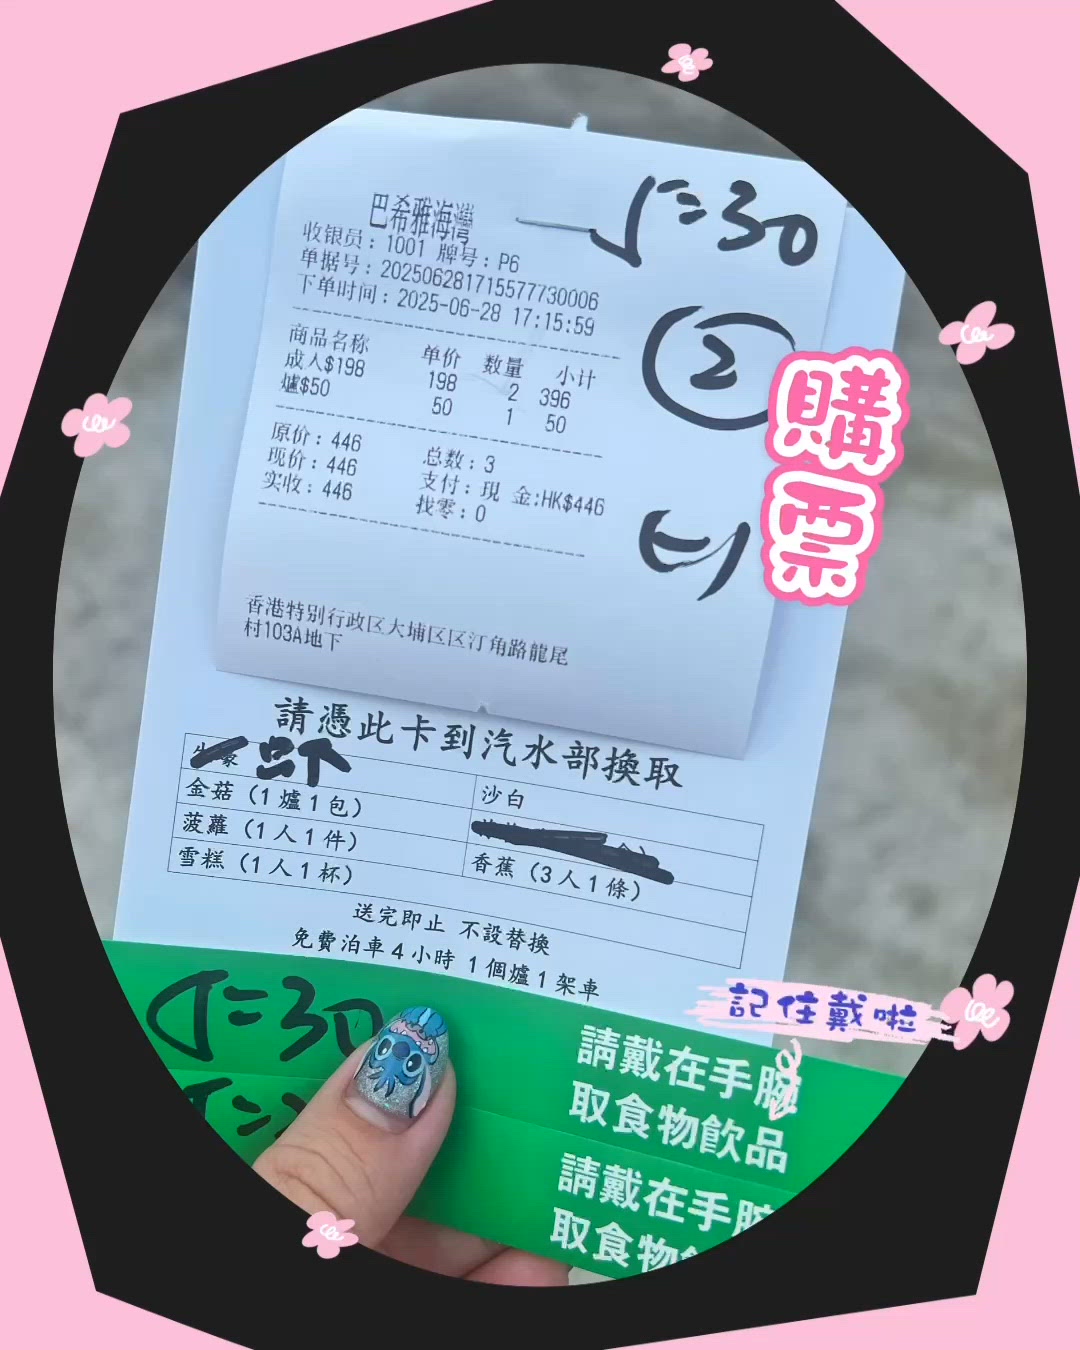 巴希雅海灣
收银员：1001 牌号：P6
单据号：202506281715577730006
下单时间：2025-06-28 17:15:59
商品名称 单价 数量 小计
成人$198 198 2 396
爐$50 50 1 50
原价：446 总数：3
现价：446 支付：現 金:HK$446
实收：446 找零：0
香港特别行政区大埔区区汀角路龍尾
村103A地下
=30
2
購票
請憑此卡到汽水部換取
沙白
金菇（1爐1包）
菠蘿（1人1件） 香蕉（3人1條）
雪糕（1人1杯）
送完即止 不設替換
免費泊車4小時 1個爐1架車
記住戴啦
=30
請戴在手腕
取食物飲品
請戴在手腕
取食物